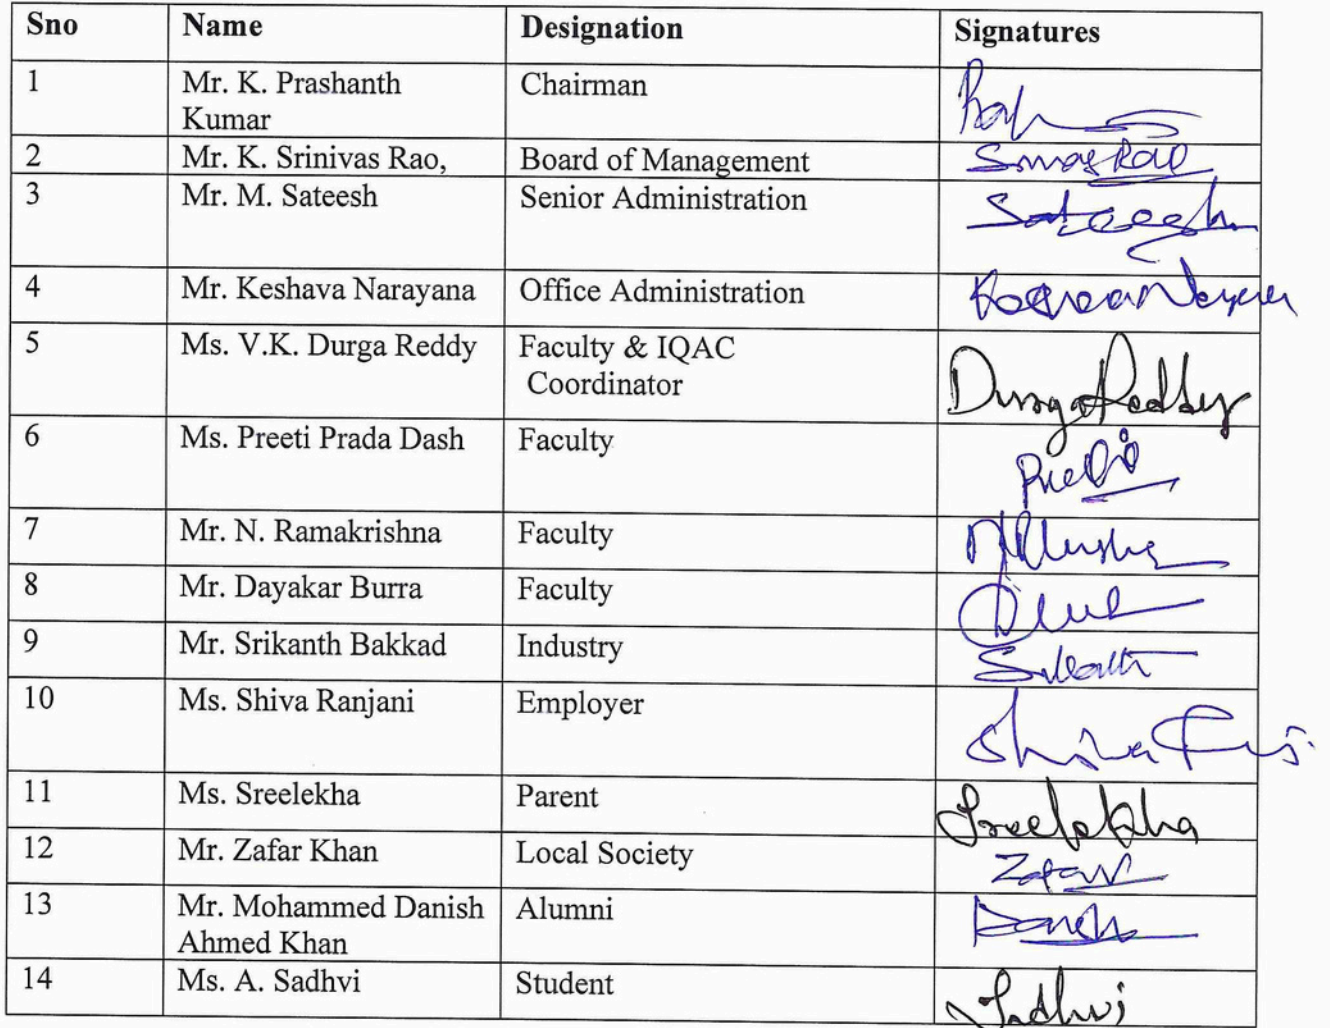 Sno Name Designation Signatures
1 Mr. K. Prashanth Chairman
Kumar
2 Mr. K. Srinivas Rao, Board of Management
3 Mr. M. Sateesh Senior Administration Sateesh
4 Mr. Keshava Narayana Office Administration
5 Ms. V.K. Durga Reddy Faculty & IQAC
Coordinator Durga Reddy
6 Ms. Preeti Prada Dash Faculty
7 Mr. N. Ramakrishna Faculty
8 Mr. Dayakar Burra Faculty
9 Mr. Srikanth Bakkad Industry
10 Ms. Shiva Ranjani Employer
11 Ms. Sreelekha Parent Sreelekha
12 Mr. Zafar Khan Local Society Zafar
13 Mr. Mohammed Danish Alumni
Ahmed Khan
14 Ms. A. Sadhvi Student Sadhvi